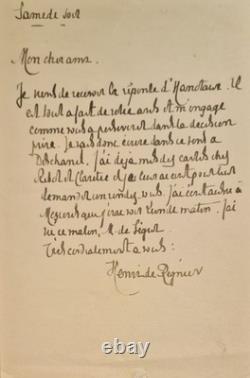 Samedi soir
Mon cher ami
Je viens de recevoir la réponse d'Hanotaux. Il
est tout a fait de votre avis et m'engage
comme vous a persévérer dans la décision
prise. Je vais donc écrire dans ce sens a
Deschanel. J'ai déja mis des cartes chez
Ribot et Claretie et je leur ai écrit pour leur
demander un rendez vous. J'ai écrit aussi a
que j'irai voir lundi matin. J'ai
vu ce matin, M. de Ségur.
Très cordialement a vous:
Henri de Régnier
ebay